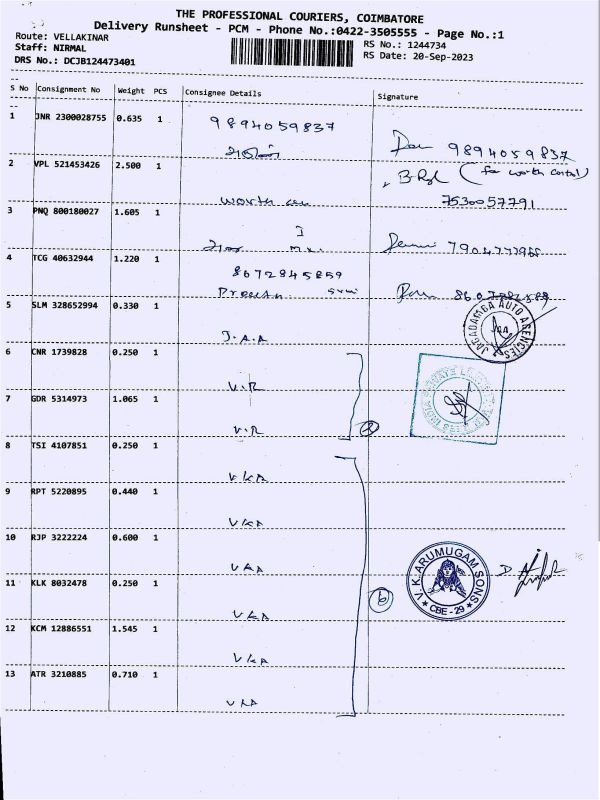 THE PROFESSIONAL COURIERS, COIMBATORE
Delivery Runsheet - PCM - Phone No.:0422-3505555 - Page No.:1
Route: VELLAKINAR
RS No.: 1244734
Staff: NIRMAL
RS Date: 20-Sep-2023
DRS No.: DCJB124473401
S No Consignment No Weight PCS Consignee Details Signature
1 JNR 2300028755 0.635 1 9894059837
9894059837
2 VPL 521453426 2.500 1
(for worth
worth
7530057791
3 PNQ 800180027 1.605 1
4 TCG 40632944 1.220 1
5 SLM 328652994 0.330 1
J.A.A
JAGADAMBA AUTO AGENCIES
6 CNR 1739828 0.250 1
V.R
7 GDR 5314973 1.065 1
V.R
8 TSI 4107851 0.250 1
VKA
9 RPT 5220895 0.440 1
VKA
10 RJP 3222224 0.600 1
VKA
V.K.ARUMUGAM SONS
CBE - 29
11 KLK 8032478 0.250 1
VKA
12 KCM 12886551 1.545 1
VKA
13 ATR 3210885 0.710 1
VKA